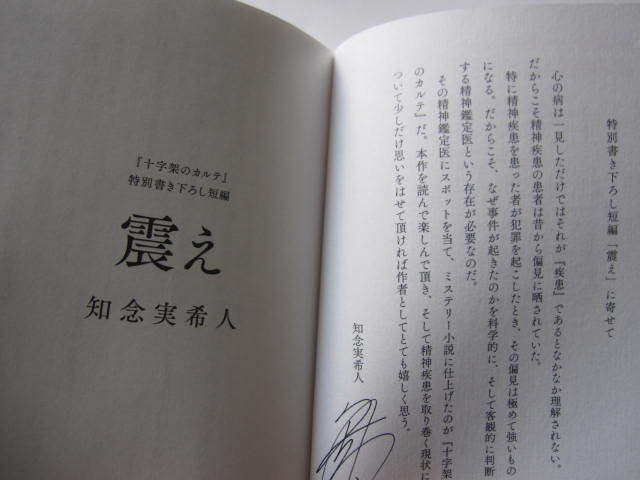 特別書き下ろし短編「震え」に寄せて
心の病は一見しただけではそれが『疾患』であるとなかなか理解されない。
だからこそ精神疾患の患者は昔から偏見に晒されていた。
特に精神疾患を患った者が犯罪を起こしたとき、その偏見は極めて強いもの
になる。だからこそ、なぜ事件が起きたのかを科学的に、そして客観的に判断
する精神鑑定医という存在が必要なのだ。
その精神鑑定医にスポットを当て、ミステリー小説に仕上げたのが『十字架
のカルテ』だ。本作を読んで楽しんで頂き、そして精神疾患を取り巻く現状に
ついて少しだけ思いをはせて頂ければ作者としてとても嬉しく思う。
知念実希人
『十字架のカルテ』
特別書き下ろし短編
震え
知念実希人